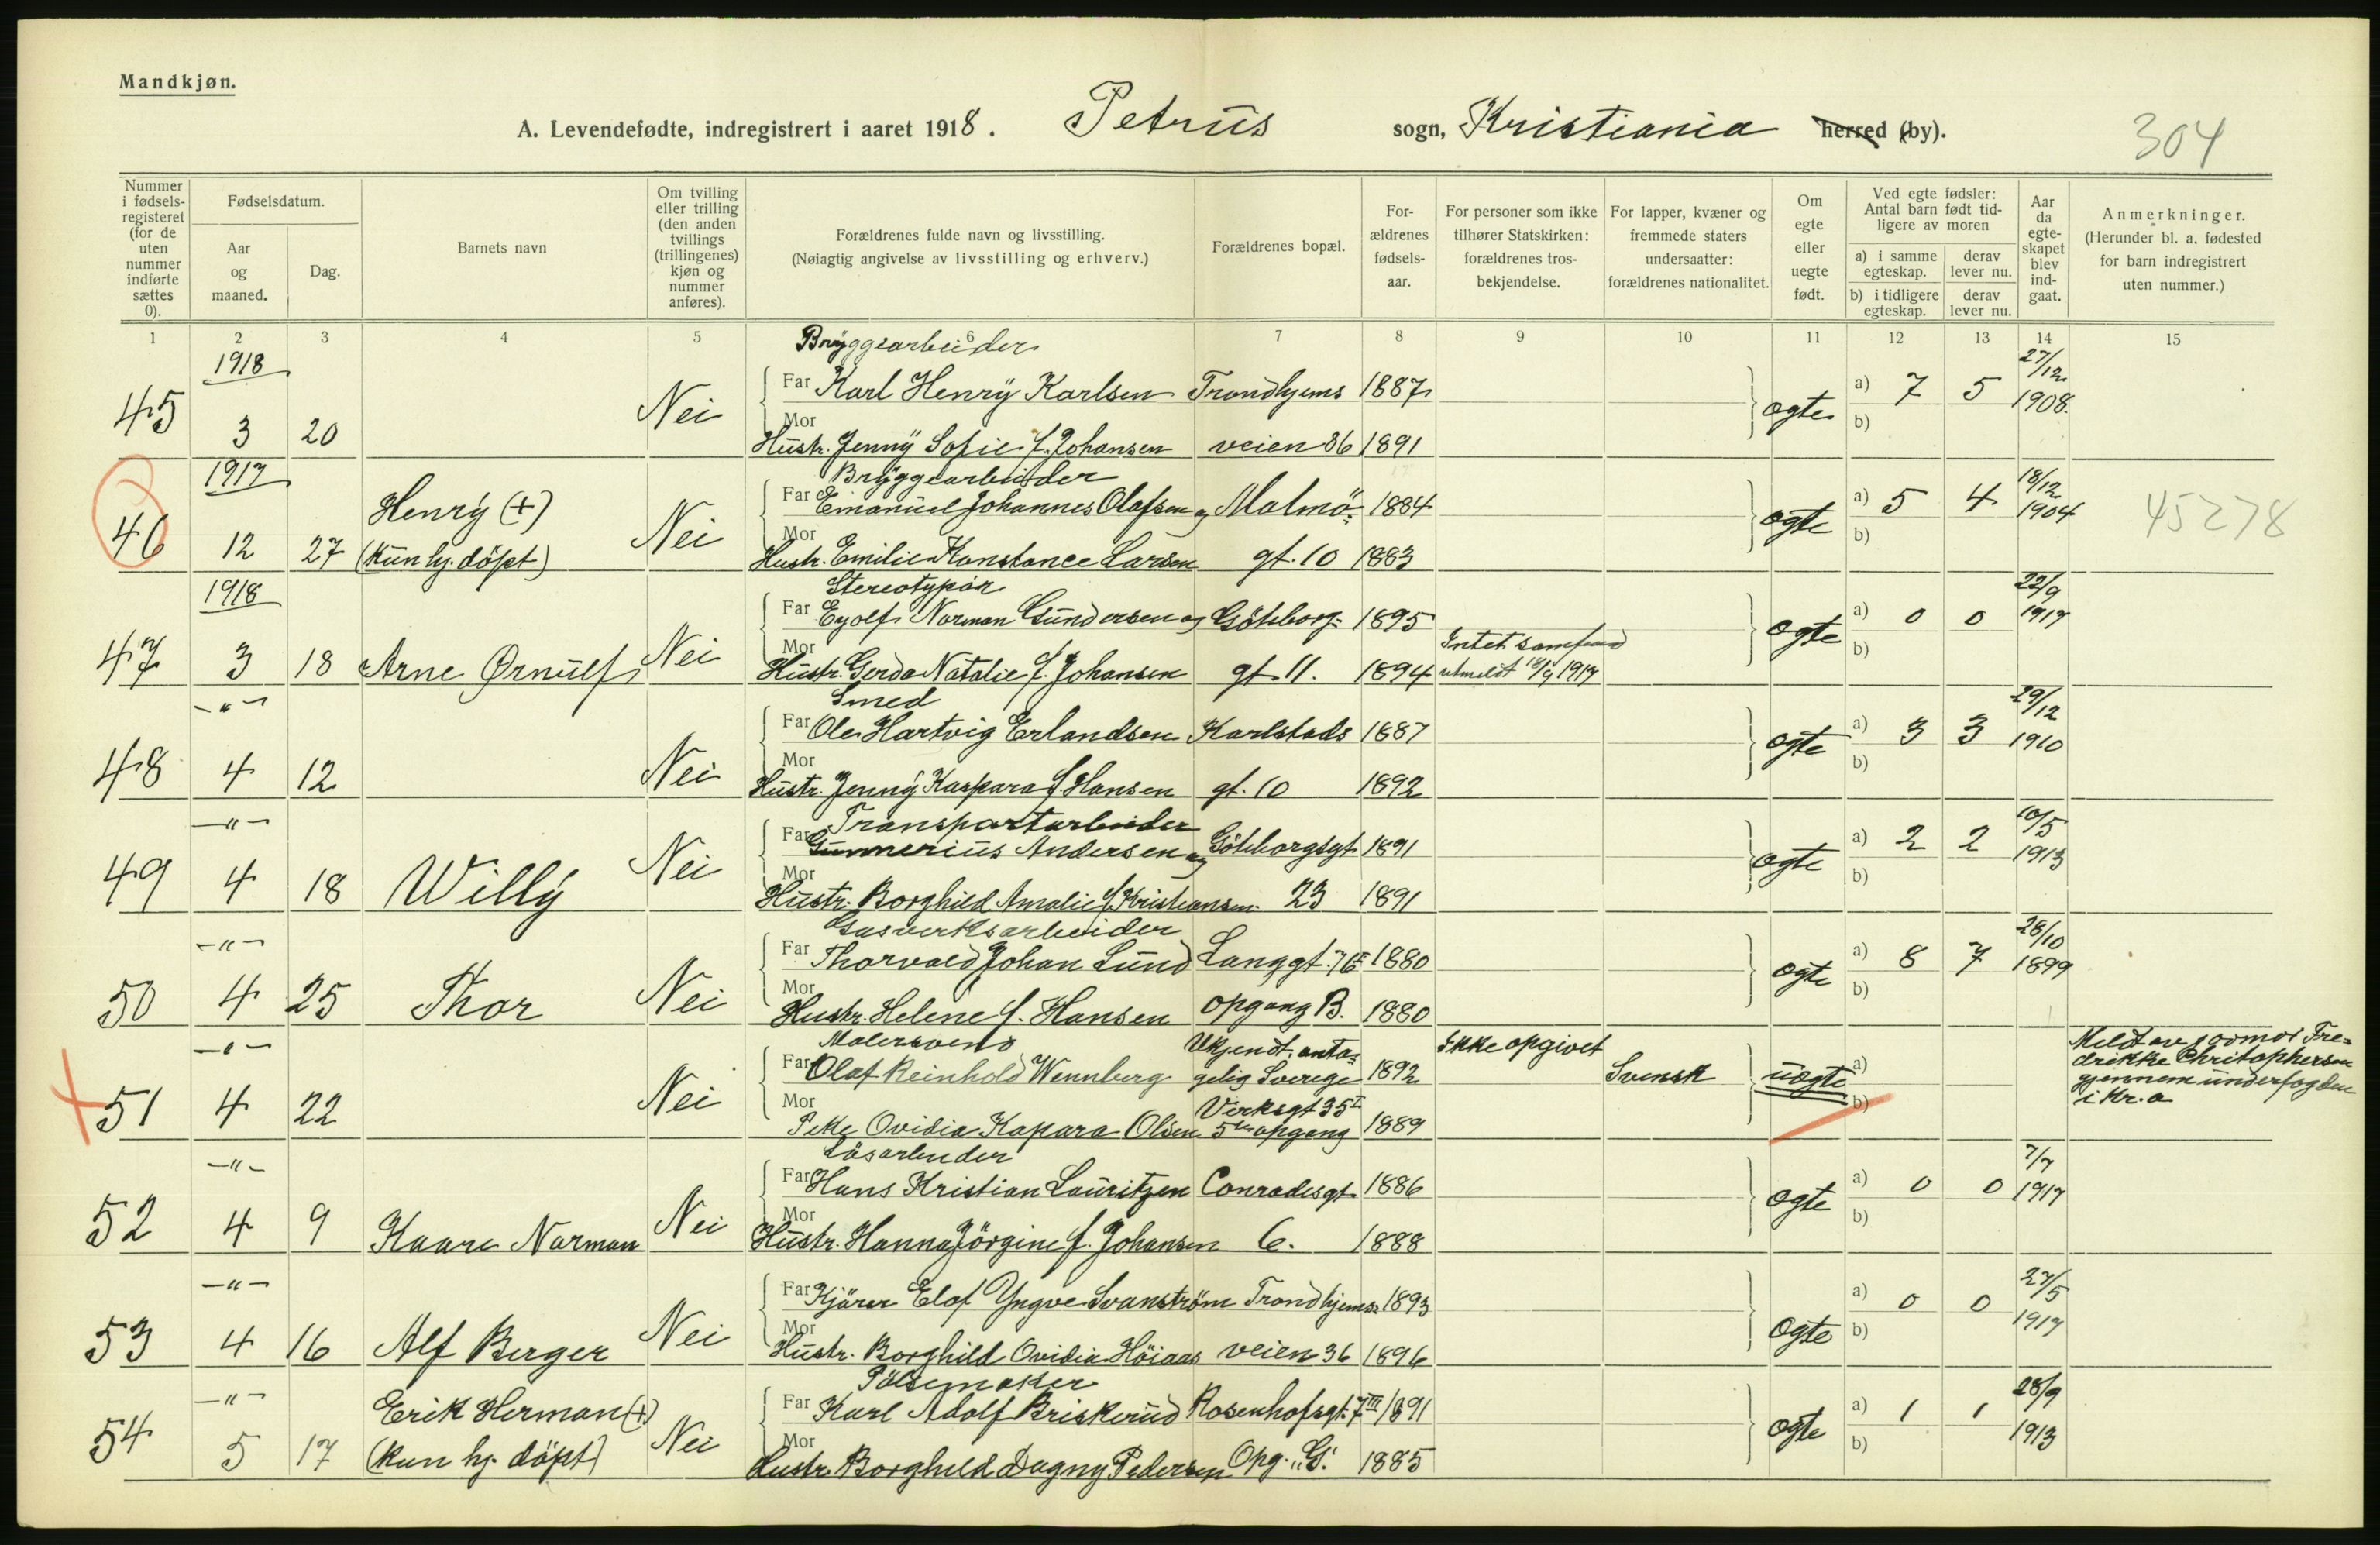 Mandkjøn.
A. Levendefødte, indregistrert i aaret 1918. Petrus sogn, Kristiania herred (by).
304
Nummer i fødsels-registeret (for de uten nummer indførte sættes 0).
Fødselsdatum.
Aar og maaned.
Dag.
Barnets navn
Om tvilling eller trilling (den anden tvillings (trillingenes) kjøn og nummer anføres).
Forældrenes fulde navn og livsstilling.
(Nøiagtig angivelse av livsstilling og erhverv.)
Forældrenes bopæl.
For-ældrenes fødsels-aar.
For personer som ikke tilhører Statskirken: forældrenes tros-bekjendelse.
For lapper, kvæner og fremmede staters undersaatter: forældrenes nationalitet.
Om egte eller uegte født.
Ved egte fødsler: Antal barn født tid-ligere av moren
a) i samme egteskap.
derav lever nu.
b) i tidligere egteskap.
derav lever nu.
Aar da egte-skapet blev ind-gaat.
Anmerkninger.
(Herunder bl. a. fødested for barn indregistrert uten nummer.)
1 2 3 4 5 6 7 8 9 10 11 12 13 14 15
1918 Bryggearbeider 27/12
Far Karl Henry Karlsen Trondhjems 1887 a) 7 5 1908
45 3 20 Nei ogte b)
Mor Hustr. Jenny Sofie f. Johansen veien 86 1891
1917 Bryggearbeider 18/12
Henry (+) Far Emanuel Johannes Olafsen og Malmö- 1884 a) 5 4 1904 45278
46 12 27 (kun hj. döpt) Nei ogte b)
Mor Hustr. Emilie Konstance Larsen gt. 10 1883
1918 Stereotypør 22/9
Far Eyolf Norman Gundersen og Göteborg- 1895 a) 0 0 1917
Intet samfund
47 3 18 Arne Ørnulf Nei Mor Hustr. Gerda Natalie f. Johansen gt. 11. 1894 utmeldt 18/9 1917 ogte b)
-"- Smed 29/12
Far Ole Hartvig Erlandsen Karlstads 1887 a) 3 3 1910
48 4 12 Nei Mor Hustr. Jenny Kaspara f. Hansen gt. 10 1892 ogte b)
-"- Transportarbeider 10/5
Far Gunnerius Andersen og Göteborgsgt. 1891 a) 2 2 1913
49 4 18 Willy Nei Mor Hustr. Borghild Amalie f. Kristiansen 23 1891 ogte b)
-"- Gasverksarbeider 28/10
Far Thorvald Johan Lund Langgt. 76 1880 a) 8 7 1899
50 4 25 Thor Nei Mor Hustr. Helene f. Hansen opgang B. 1880 ogte b)
-"- Malersvend Ukjendt, anta- Ikke opgivet Meldt av jordmor Fre-
Far Olaf Reinhold Wennberg gelig Sverige 1892 Svensk uogte a) drikke Christophersen
gjennem underfogden
51 4 22 Nei Verksgt 35 I b) i Kr.a
Mor Pike Ovidia Kapara Olsen 5te opgang 1889
-"- Løsarbeider 7/7
Far Hans Kristian Lauritzen Conradisgt. 1886 a) 0 0 1917
52 4 9 Kaare Norman Nei Mor Hustr. Hanna Jörgine f. Johansen 6. 1888 ogte b)
-"- 27/5
Far Kjörer Elof Yngve Svanström Trondhjems- 1893 a) 0 0 1917
53 4 16 Alf Berger Nei Mor Hustr. Borghild Ovidia Höiaas veien 36 1896 ogte b)
-"- Pölsemaker 28/9
Erik Herman (+) Far Karl Adolf Briskerud Rosenhofsgt. 7 III 1891 a) 1 1 1913
54 5 17 (kun hj. döpt) Nei Mor Hustr. Borghild Dagny Pedersen Opg. "G". 1885 ogte b)